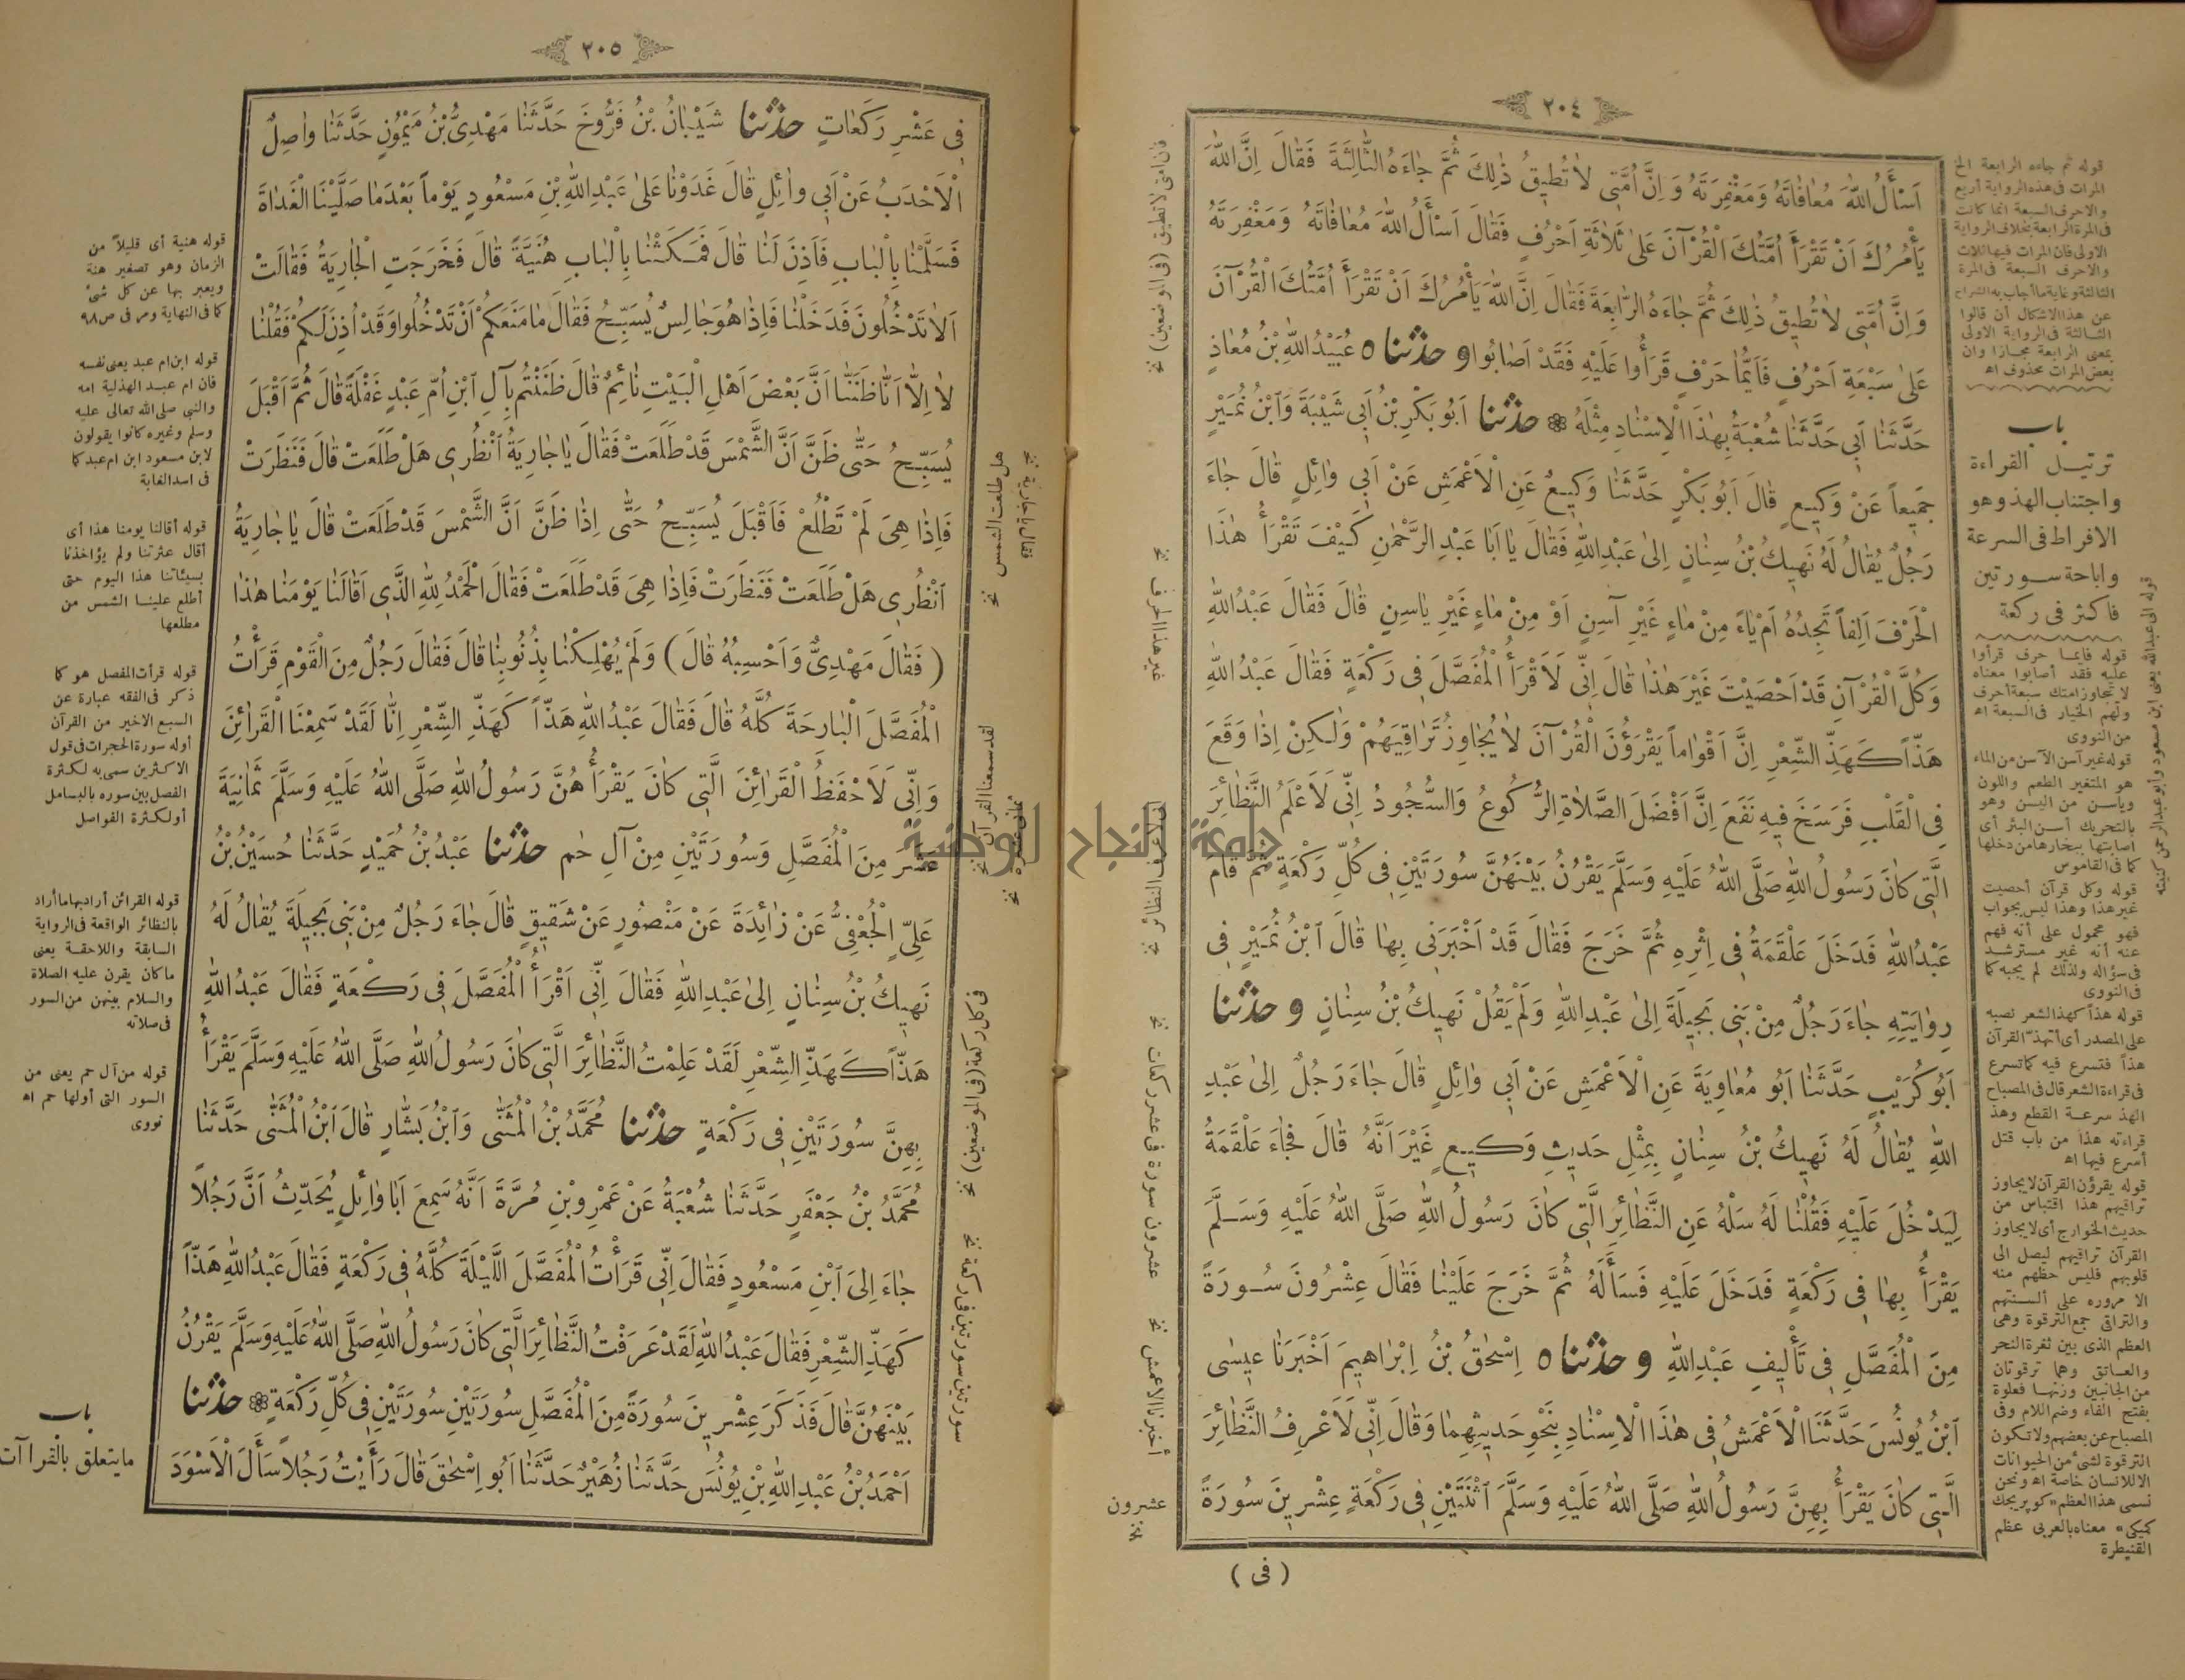 ٢٠٤
اَسْأَلُ اللهَ مُعَافَاتَهُ وَمَغْفِرَتَهُ وَ اِنَّ اُمَّتِى لَا تُطِيقُ ذٰلِكَ ثُمَّ جَاءَهُ الثَّالِثَةَ فَقَالَ اِنَّ اللهَ
يَأْمُرُكَ اَنْ تَقْرَأَ اُمَّتُكَ الْقُرْآنَ عَلىٰ ثَلاٰثَةِ اَحْرُفٍ فَقَالَ اَسْأَلُ اللهَ مُعَافَاتَهُ وَمَغْفِرَتَهُ
وَاِنَّ اُمَّتِى لَا تُطِيقُ ذٰلِكَ ثُمَّ جَاءَهُ الرَّابِعَةَ فَقَالَ اِنَّ اللهَ يَأْمُرُكَ اَنْ تَقْرَأَ اُمَّتُكَ الْقُرْآنَ
عَلىٰ سَبْعَةِ اَحْرُفٍ فَاَيُّمَا حَرْفٍ قَرَأُوا عَلَيْهِ فَقَدْ اَصَابُوا و حدثنا ه عُبَيْدُ اللهِ بْنُ مُعَاذٍ
حَدَّثَنَا اَبِى حَدَّثَنَا شُعْبَةُ بِهٰذَا الْاِسْنَادِ مِثْلَهُ ❁ حدثنا اَبُو بَكْرِ بْنُ اَبِى شَيْبَةَ وَابْنُ نُمَيْرٍ
جَمِيعاً عَنْ وَكِيعٍ قَالَ اَبُو بَكْرٍ حَدَّثَنَا وَكِيعٌ عَنِ الْاَعْمَشِ عَنْ اَبِى وَائِلٍ قَالَ جَاءَ
رَجُلٌ يُقَالُ لَهُ نَهِيكُ بْنُ سِنَانٍ اِلىٰ عَبْدِ اللهِ فَقَالَ يَا اَبَا عَبْدِ الرَّحْمٰنِ كَيْفَ تَقْرَأُ هٰذَا
الْحَرْفَ اَلِفاً تَجِدُهُ اَمْ يَاءً مِنْ مَاءٍ غَيْرِ آسِنٍ اَوْ مِنْ مَاءٍ غَيْرِ يَاسِنٍ قَالَ فَقَالَ عَبْدُ اللهِ
وَكُلَّ الْقُرْآنِ قَدْ اَحْصَيْتَ غَيْرَ هٰذَا قَالَ اِنِّى لَاَقْرَأُ الْمُفَصَّلَ فِى رَكْعَةٍ فَقَالَ عَبْدُ اللهِ
هَذًّا كَهَذِّ الشِّعْرِ اِنَّ اَقْوَاماً يَقْرَؤُنَ الْقُرْآنَ لَا يُجَاوِزُ تَرَاقِيَهُمْ وَلٰكِنْ اِذَا وَقَعَ
فِى الْقَلْبِ فَرَسَخَ فِيهِ نَفَعَ اِنَّ اَفْضَلَ الصَّلَاةِ الرُّكُوعُ وَالسُّجُودُ اِنِّى لَاَعْلَمُ النَّظَائِرَ
الَّتِى كَانَ رَسُولُ اللهِ صَلَّى اللهُ عَلَيْهِ وَسَلَّمَ يَقْرُنُ بَيْنَهُنَّ سُورَتَيْنِ فِى كُلِّ رَكْعَةٍ ثُمَّ قَامَ
عَبْدُ اللهِ فَدَخَلَ عَلْقَمَةُ فِى اِثْرِهِ ثُمَّ خَرَجَ فَقَالَ قَدْ اَخْبَرَنِى بِهَا قَالَ ابْنُ نُمَيْرٍ فِى
رِوَايَتِهِ جَاءَ رَجُلٌ مِنْ بَنِى بَجِيلَةَ اِلىٰ عَبْدِ اللهِ وَلَمْ يَقُلْ نَهِيكُ بْنُ سِنَانٍ و حدثنا
اَبُو كُرَيْبٍ حَدَّثَنَا اَبُو مُعَاوِيَةَ عَنِ الْاَعْمَشِ عَنْ اَبِى وَائِلٍ قَالَ جَاءَ رَجُلٌ اِلىٰ عَبْدِ
اللهِ يُقَالُ لَهُ نَهِيكُ بْنُ سِنَانٍ بِمِثْلِ حَدِيثِ وَكِيعٍ غَيْرَ اَنَّهُ قَالَ فَجَاءَ عَلْقَمَةُ
لِيَدْخُلَ عَلَيْهِ فَقُلْنَا لَهُ سَلْهُ عَنِ النَّظَائِرِ الَّتِى كَانَ رَسُولُ اللهِ صَلَّى اللهُ عَلَيْهِ وَسَلَّمَ
يَقْرَأُ بِهَا فِى رَكْعَةٍ فَدَخَلَ عَلَيْهِ فَسَأَلَهُ ثُمَّ خَرَجَ عَلَيْنَا فَقَالَ عِشْرُونَ سُورَةً
مِنَ الْمُفَصَّلِ فِى تَأْلِيفِ عَبْدِ اللهِ و حدثنا ه اِسْحٰقُ بْنُ اِبْرَاهِيمَ اَخْبَرَنَا عِيسَى
ابْنُ يُونُسَ حَدَّثَنَا الْاَعْمَشُ فِى هٰذَا الْاِسْنَادِ بِنَحْوِ حَدِيثِهِمَا وَقَالَ اِنِّى لَاَعْرِفُ النَّظَائِرَ
الَّتِى كَانَ يَقْرَأُ بِهِنَّ رَسُولُ اللهِ صَلَّى اللهُ عَلَيْهِ وَسَلَّمَ اثْنَتَيْنِ فِى رَكْعَةٍ عِشْرِينَ سُورَةً
( فى )
قوله ثم جاءه الرابعة الخ
المرات فى هذه الرواية أربع
والاحرف السبعة انما كانت
فى المرة الرابعة بخلاف الرواية
الاولى فان المرات فيها ثلاث
والاحرف السبعة فى المرة
الثالثة وغاية ما أجاب به الشراح
عن هذا الاشكال أن قالوا
الثالثة فى الرواية الاولى
بمعنى الرابعة مجازا وان
بعض المرات محذوف اه
باب
ترتيل القراءة
واجتناب الهذ وهو
الافراط فى السرعة
واباحة سورتين
فاكثر فى ركعة
قوله فايما حرف قرأوا
عليه فقد أصابوا معناه
لا تتجاوز امتك سبعة أحرف
ولهم الخيار فى السبعة اه
من النووى
قوله غير آسن الآسن من الماء
هو المتغير الطعم واللون
وياسن من اليسن وهو
بالتحريك أسن البئر أى
أصابتها ببخارها من دخلها
كما فى القاموس
قوله وكل قرآن أحصيت
غير هذا وهذا ليس بجواب
فهو محمول على أنه فهم
عنه أنه غير مسترشد
فى سؤاله ولذلك لم يجبه كما
فى النووى
قوله هذاً كهذ الشعر نصبه
على المصدر أى أتهذّ القرآن
هذاً فتسرع فيه كما تسرع
فى قراءة الشعر قال فى المصباح
الهذ سرعة القطع وهذ
قراءته هذاً من باب قتل
أسرع فيها اه
قوله يقرؤن القرآن لا يجاوز
تراقيهم هذا اقتباس من
حديث الخوارج أى لا يجاوز
القرآن تراقيهم ليصل الى
قلوبهم فليس حظهم منه
الا مروره على ألسنتهم
والتراقى جمع الترقوة وهى
العظم الذى بين ثغرة النحر
والعاتق وهما ترقوتان
من الجانبين وزنها فعلوة
بفتح الفاء وضم اللام وفى
المصباح عن بعضهم ولا تكون
الترقوة لشئ من الحيوانات
الا للانسان خاصة اه ونحن
نسمى هذا العظم «كوپريجك
كميكى» معناه بالعربى عظم
القنيطرة
قوله الى عبد الله يعنى ابن مسعود وأبو عبد الرحمن كنيته
فان امتى لا تطيق (فى الموضعين) نخ
غير هذا الحرف نخ
انى لا عرف النظائر نخ
عشرون سورة فى عشر ركعات نخ
أخبرنا الاعمش نخ
عشرون
نخ
٢٠٥
فِى عَشْرِ رَكَعَاتٍ حدثنا شَيْبَانُ بْنُ فَرُّوخَ حَدَّثَنَا مَهْدِىُّ بْنُ مَيْمُونٍ حَدَّثَنَا وَاصِلٌ
الْاَحْدَبُ عَنْ اَبِى وَائِلٍ قَالَ غَدَوْنَا عَلىٰ عَبْدِ اللهِ بْنِ مَسْعُودٍ يَوْماً بَعْدَ مَا صَلَّيْنَا الْغَدَاةَ
فَسَلَّمْنَا بِالْبَابِ فَاَذِنَ لَنَا قَالَ فَمَكَثْنَا بِالْبَابِ هُنَيَّةً قَالَ فَخَرَجَتِ الْجَارِيَةُ فَقَالَتْ
اَلَا تَدْخُلُونَ فَدَخَلْنَا فَاِذَا هُوَ جَالِسٌ يُسَبِّحُ فَقَالَ مَا مَنَعَكُمْ اَنْ تَدْخُلُوا وَقَدْ اُذِنَ لَكُمْ فَقُلْنَا
لَا اِلَّا اَنَّا ظَنَنَّا اَنَّ بَعْضَ اَهْلِ الْبَيْتِ نَائِمٌ قَالَ ظَنَنْتُمْ بِآلِ ابْنِ اُمِّ عَبْدٍ غَفْلَةً قَالَ ثُمَّ اَقْبَلَ
يُسَبِّحُ حَتَّى ظَنَّ اَنَّ الشَّمْسَ قَدْ طَلَعَتْ فَقَالَ يَا جَارِيَةُ انْظُرِى هَلْ طَلَعَتْ قَالَ فَنَظَرَتْ
فَاِذَا هِىَ لَمْ تَطْلُعْ فَاَقْبَلَ يُسَبِّحُ حَتَّى اِذَا ظَنَّ اَنَّ الشَّمْسَ قَدْ طَلَعَتْ قَالَ يَا جَارِيَةُ
انْظُرِى هَلْ طَلَعَتْ فَنَظَرَتْ فَاِذَا هِىَ قَدْ طَلَعَتْ فَقَالَ الْحَمْدُ لِلّٰهِ الَّذِى اَقَالَنَا يَوْمَنَا هٰذَا
( فَقَالَ مَهْدِىٌّ وَاَحْسِبُهُ قَالَ ) وَلَمْ يُهْلِكْنَا بِذُنُوبِنَا قَالَ فَقَالَ رَجُلٌ مِنَ الْقَوْمِ قَرَأْتُ
الْمُفَصَّلَ الْبَارِحَةَ كُلَّهُ قَالَ فَقَالَ عَبْدُ اللهِ هَذًّا كَهَذِّ الشِّعْرِ اِنَّا لَقَدْ سَمِعْنَا الْقَرَائِنَ
وَاِنِّى لَاَحْفَظُ الْقَرَائِنَ الَّتِى كَانَ يَقْرَأُهُنَّ رَسُولُ اللهِ صَلَّى اللهُ عَلَيْهِ وَسَلَّمَ ثَمَانِيَةَ
عَشَرَ مِنَ الْمُفَصَّلِ وَسُورَتَيْنِ مِنْ آلِ حٰم حدثنا عَبْدُ بْنُ حُمَيْدٍ حَدَّثَنَا حُسَيْنُ بْنُ
عَلِىٍّ الْجُعْفِىُّ عَنْ زَائِدَةَ عَنْ مَنْصُورٍ عَنْ شَقِيقٍ قَالَ جَاءَ رَجُلٌ مِنْ بَنِى بَجِيلَةَ يُقَالُ لَهُ
نَهِيكُ بْنُ سِنَانٍ اِلىٰ عَبْدِ اللهِ فَقَالَ اِنِّى اَقْرَأُ الْمُفَصَّلَ فِى رَكْعَةٍ فَقَالَ عَبْدُ اللهِ
هَذًّا كَهَذِّ الشِّعْرِ لَقَدْ عَلِمْتُ النَّظَائِرَ الَّتِى كَانَ رَسُولُ اللهِ صَلَّى اللهُ عَلَيْهِ وَسَلَّمَ يَقْرَأُ
بِهِنَّ سُورَتَيْنِ فِى رَكْعَةٍ حدثنا مُحَمَّدُ بْنُ الْمُثَنَّى وَابْنُ بَشَّارٍ قَالَ ابْنُ الْمُثَنَّى حَدَّثَنَا
مُحَمَّدُ بْنُ جَعْفَرٍ حَدَّثَنَا شُعْبَةُ عَنْ عَمْرِو بْنِ مُرَّةَ اَنَّهُ سَمِعَ اَبَا وَائِلٍ يُحَدِّثُ اَنَّ رَجُلاً
جَاءَ اِلَى ابْنِ مَسْعُودٍ فَقَالَ اِنِّى قَرَأْتُ الْمُفَصَّلَ اللَّيْلَةَ كُلَّهُ فِى رَكْعَةٍ فَقَالَ عَبْدُ اللهِ هَذًّا
كَهَذِّ الشِّعْرِ فَقَالَ عَبْدُ اللهِ لَقَدْ عَرَفْتُ النَّظَائِرَ الَّتِى كَانَ رَسُولُ اللهِ صَلَّى اللهُ عَلَيْهِ وَسَلَّمَ يَقْرُنُ
بَيْنَهُنَّ قَالَ فَذَكَرَ عِشْرِينَ سُورَةً مِنَ الْمُفَصَّلِ سُورَتَيْنِ سُورَتَيْنِ فِى كُلِّ رَكْعَةٍ ❁ حدثنا
اَحْمَدُ بْنُ عَبْدِ اللهِ بْنِ يُونُسَ حَدَّثَنَا زُهَيْرٌ حَدَّثَنَا اَبُو اِسْحٰقَ قَالَ رَأَيْتُ رَجُلاً سَأَلَ الْاَسْوَدَ
فقال يا جارية نخ
هل طلعت الشمس نخ
لقد سمعنا القرآن نخ
ثمانى عشرة نخ
فى كل ركعة (فى الموضعين) نخ
سورتين سورتين فى ركعة نخ
قوله هنية أى قليلاً من
الزمان وهو تصغير هنة
ويعبر بها عن كل شئ
كما فى النهاية ومر فى ص ٩٨
قوله ابن ام عبد يعنى نفسه
فان ام عبد الهذلية امه
والنبى صلى الله تعالى عليه
وسلم وغيره كانوا يقولون
لابن مسعود ابن ام عبد كما
فى اسد الغابة
قوله أقالنا يومنا هذا أى
أقال عثرتنا ولم يؤاخذنا
بسيئاتنا هذا اليوم حتى
أطلع علينا الشمس من
مطلعها
قوله قرأت المفصل هو كما
ذكر فى الفقه عبارة عن
السبع الاخير من القرآن
أوله سورة الحجرات فى قول
الاكثرين سمى به لكثرة
الفصل بين سوره بالبسامل
أو لكثرة الفواصل
قوله القرائن أراد بها ما أراد
بالنظائر الواقعة فى الرواية
السابقة واللاحقة يعنى
ما كان يقرن عليه الصلاة
والسلام بينهن من السور
فى صلاته
قوله من آل حم يعنى من
السور التى أولها حم اه
نووى
باب
ما يتعلق بالقراآت
جامعة النجاح الوطنية